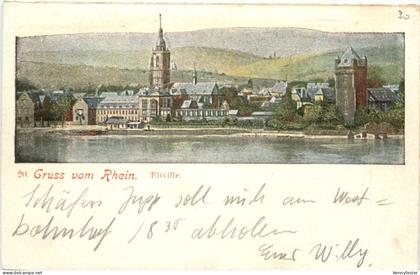 30
20. Gruss vom Rhein. Eltville.
Schäfers Jupp soll mich am West=
bahnhof 18 30 abholen
Euer Willy.